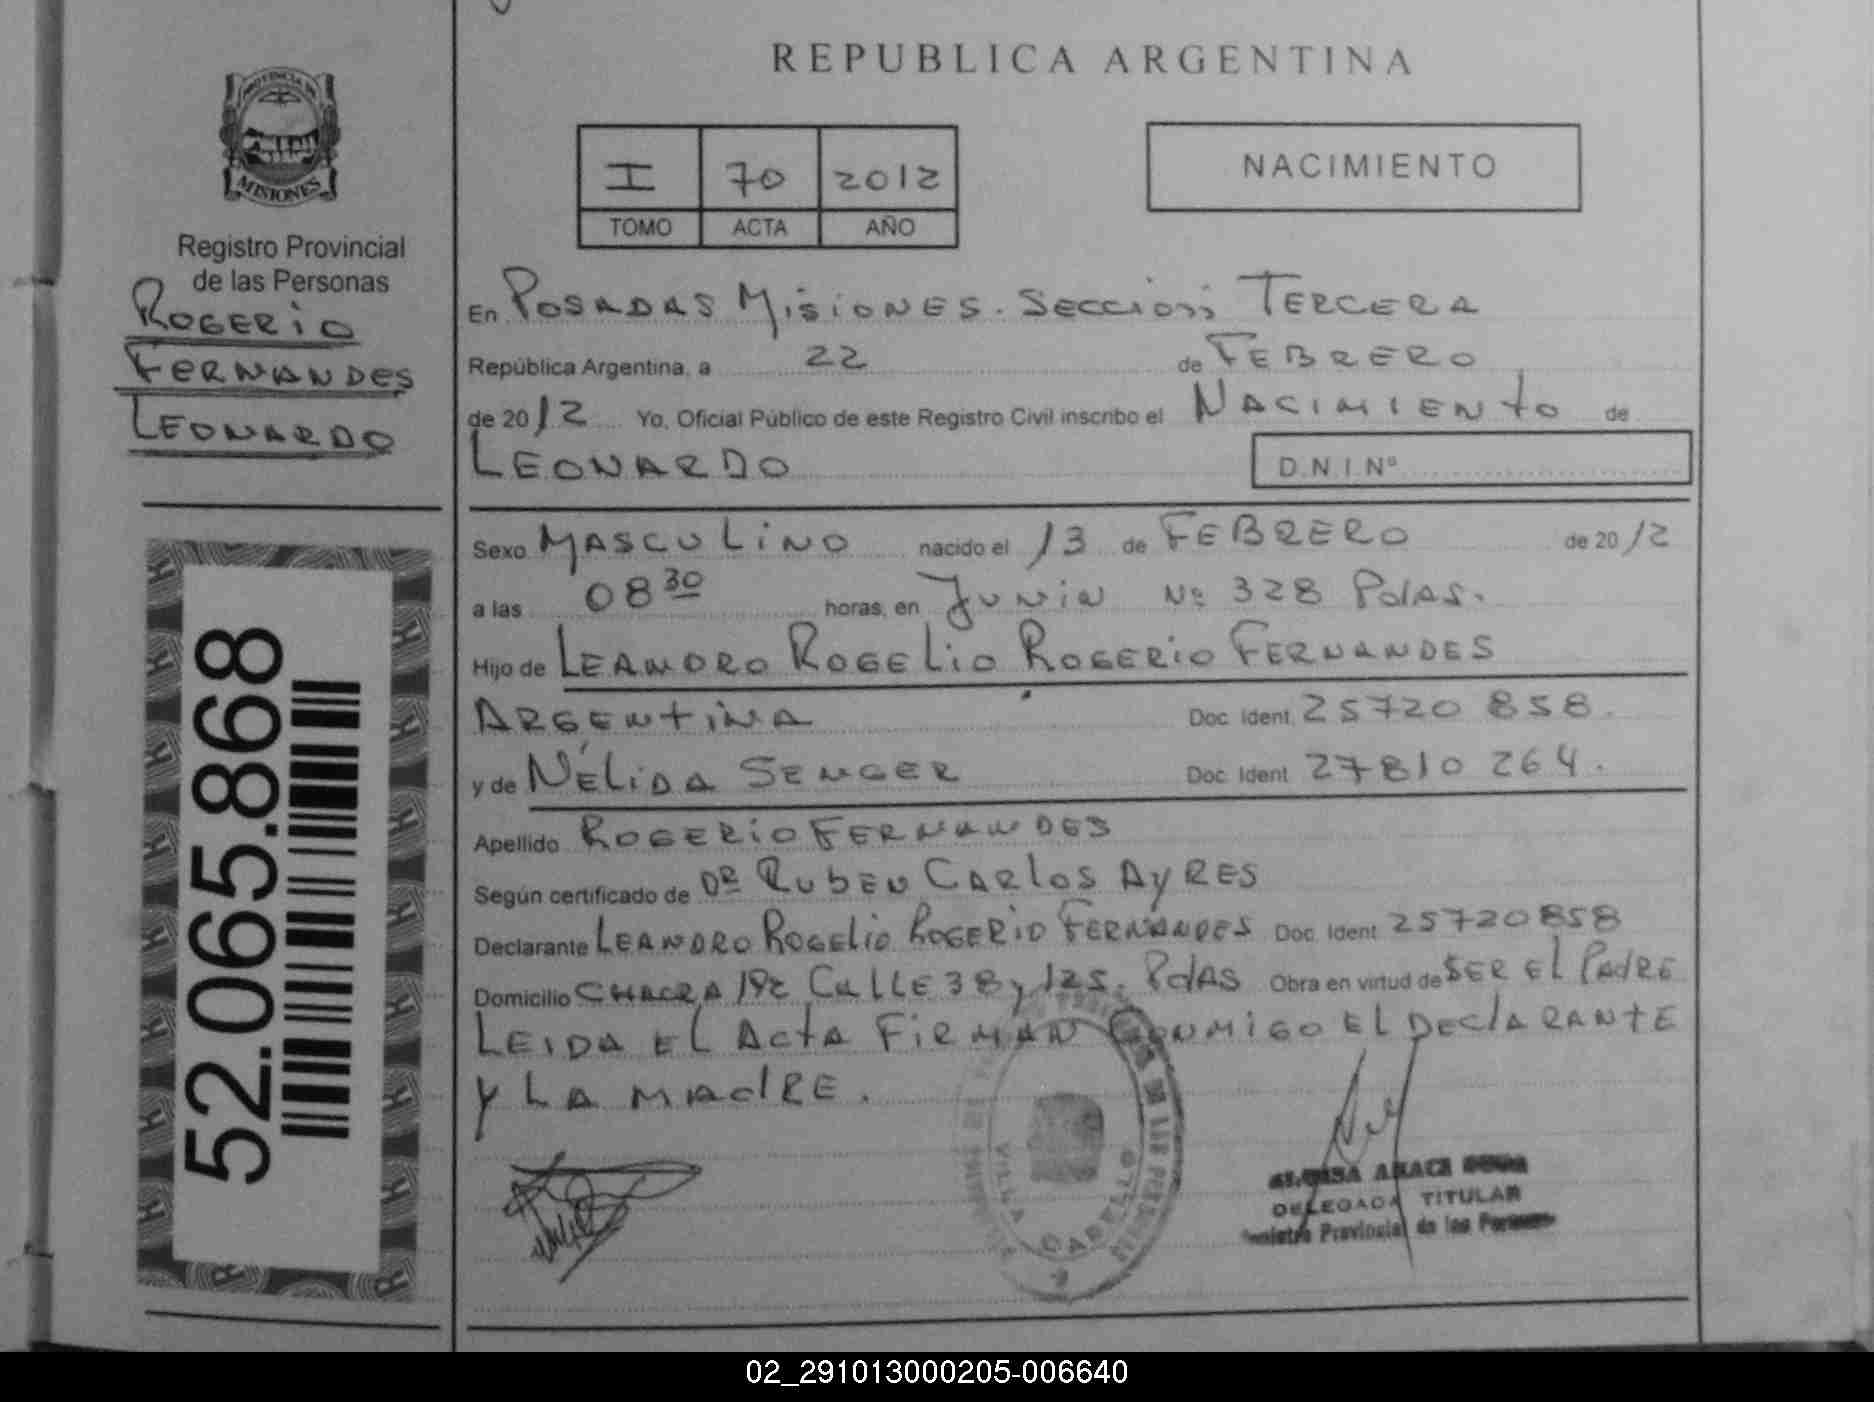 REPUBLICA ARGENTINA
PROVINCIA DE
MISIONES
Registro Provincial
de las Personas
ROGERIO
FERNANDES
LEONARDO
52.065.868
I 70 2012
TOMO ACTA AÑO
NACIMIENTO
En POSADAS MISIONES. SECCION TERCERA
República Argentina, a 22 de FEBRERO
de 2012 Yo, Oficial Público de este Registro Civil inscribo el NACIMIENTO de
LEONARDO D.N.I.Nº
Sexo MASCULINO nacido el 13 de FEBRERO de 2012
a las 08 30 horas, en JUNIN Nº 328 PdAS.
Hijo de LEANDRO ROGELIO ROGERIO FERNANDES
ARGENTINA Doc. Ident. 25720 858.
y de NÉLIDA SENGER Doc. Ident. 27810 264.
Apellido ROGERIO FERNANDES
Según certificado de DR RUBEN CARLOS AYRES
Declarante LEANDRO ROGELIO ROGERIO FERNANDES Doc. Ident. 25720858
Domicilio CHACRA 192 CALLE 38 y 125. PdAS Obra en virtud de SER EL PADRE
LEIDA EL ACTA FIRMAN CONMIGO EL DECLARANTE
Y LA MADRE.
VILLA CABELLO
DELEGADA TITULAR
Registro Provincial de las Personas
02_291013000205-006640